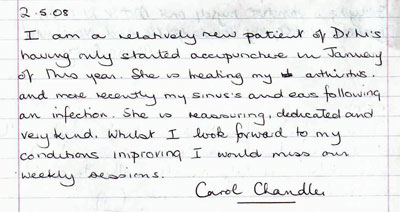 2.5.08
I am a relatively new patient of Dr Li's
having only started accupuncture in January
of this year. She is treating my arthiritis.
and more recently my sinus's and ears following
an infection. She is reassuring, dedicated and
very kind. Whilst I look forward to my
conditions improving I would miss our
weekly sessions.
Carol Chandler